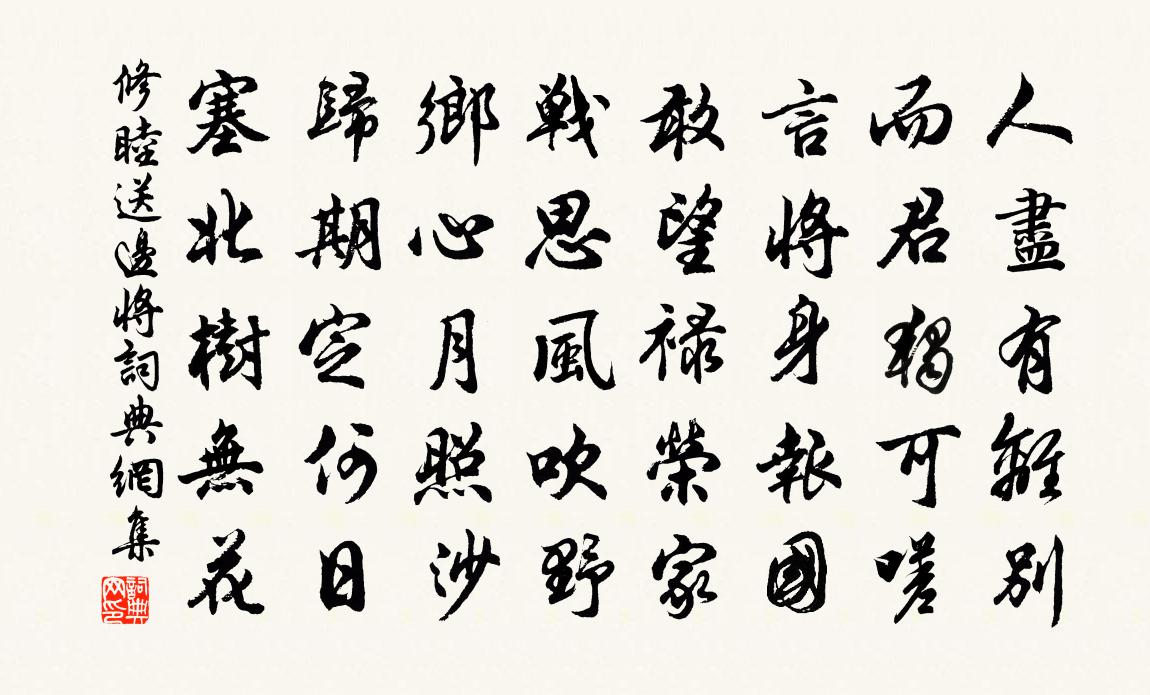 人盡有離別
而君獨可嗟
言將身報國
敢望祿榮家
戰思風吹野
鄉心月照沙
歸期定何日
塞北樹無花
修睦送邊將詞典網集
詞典網印